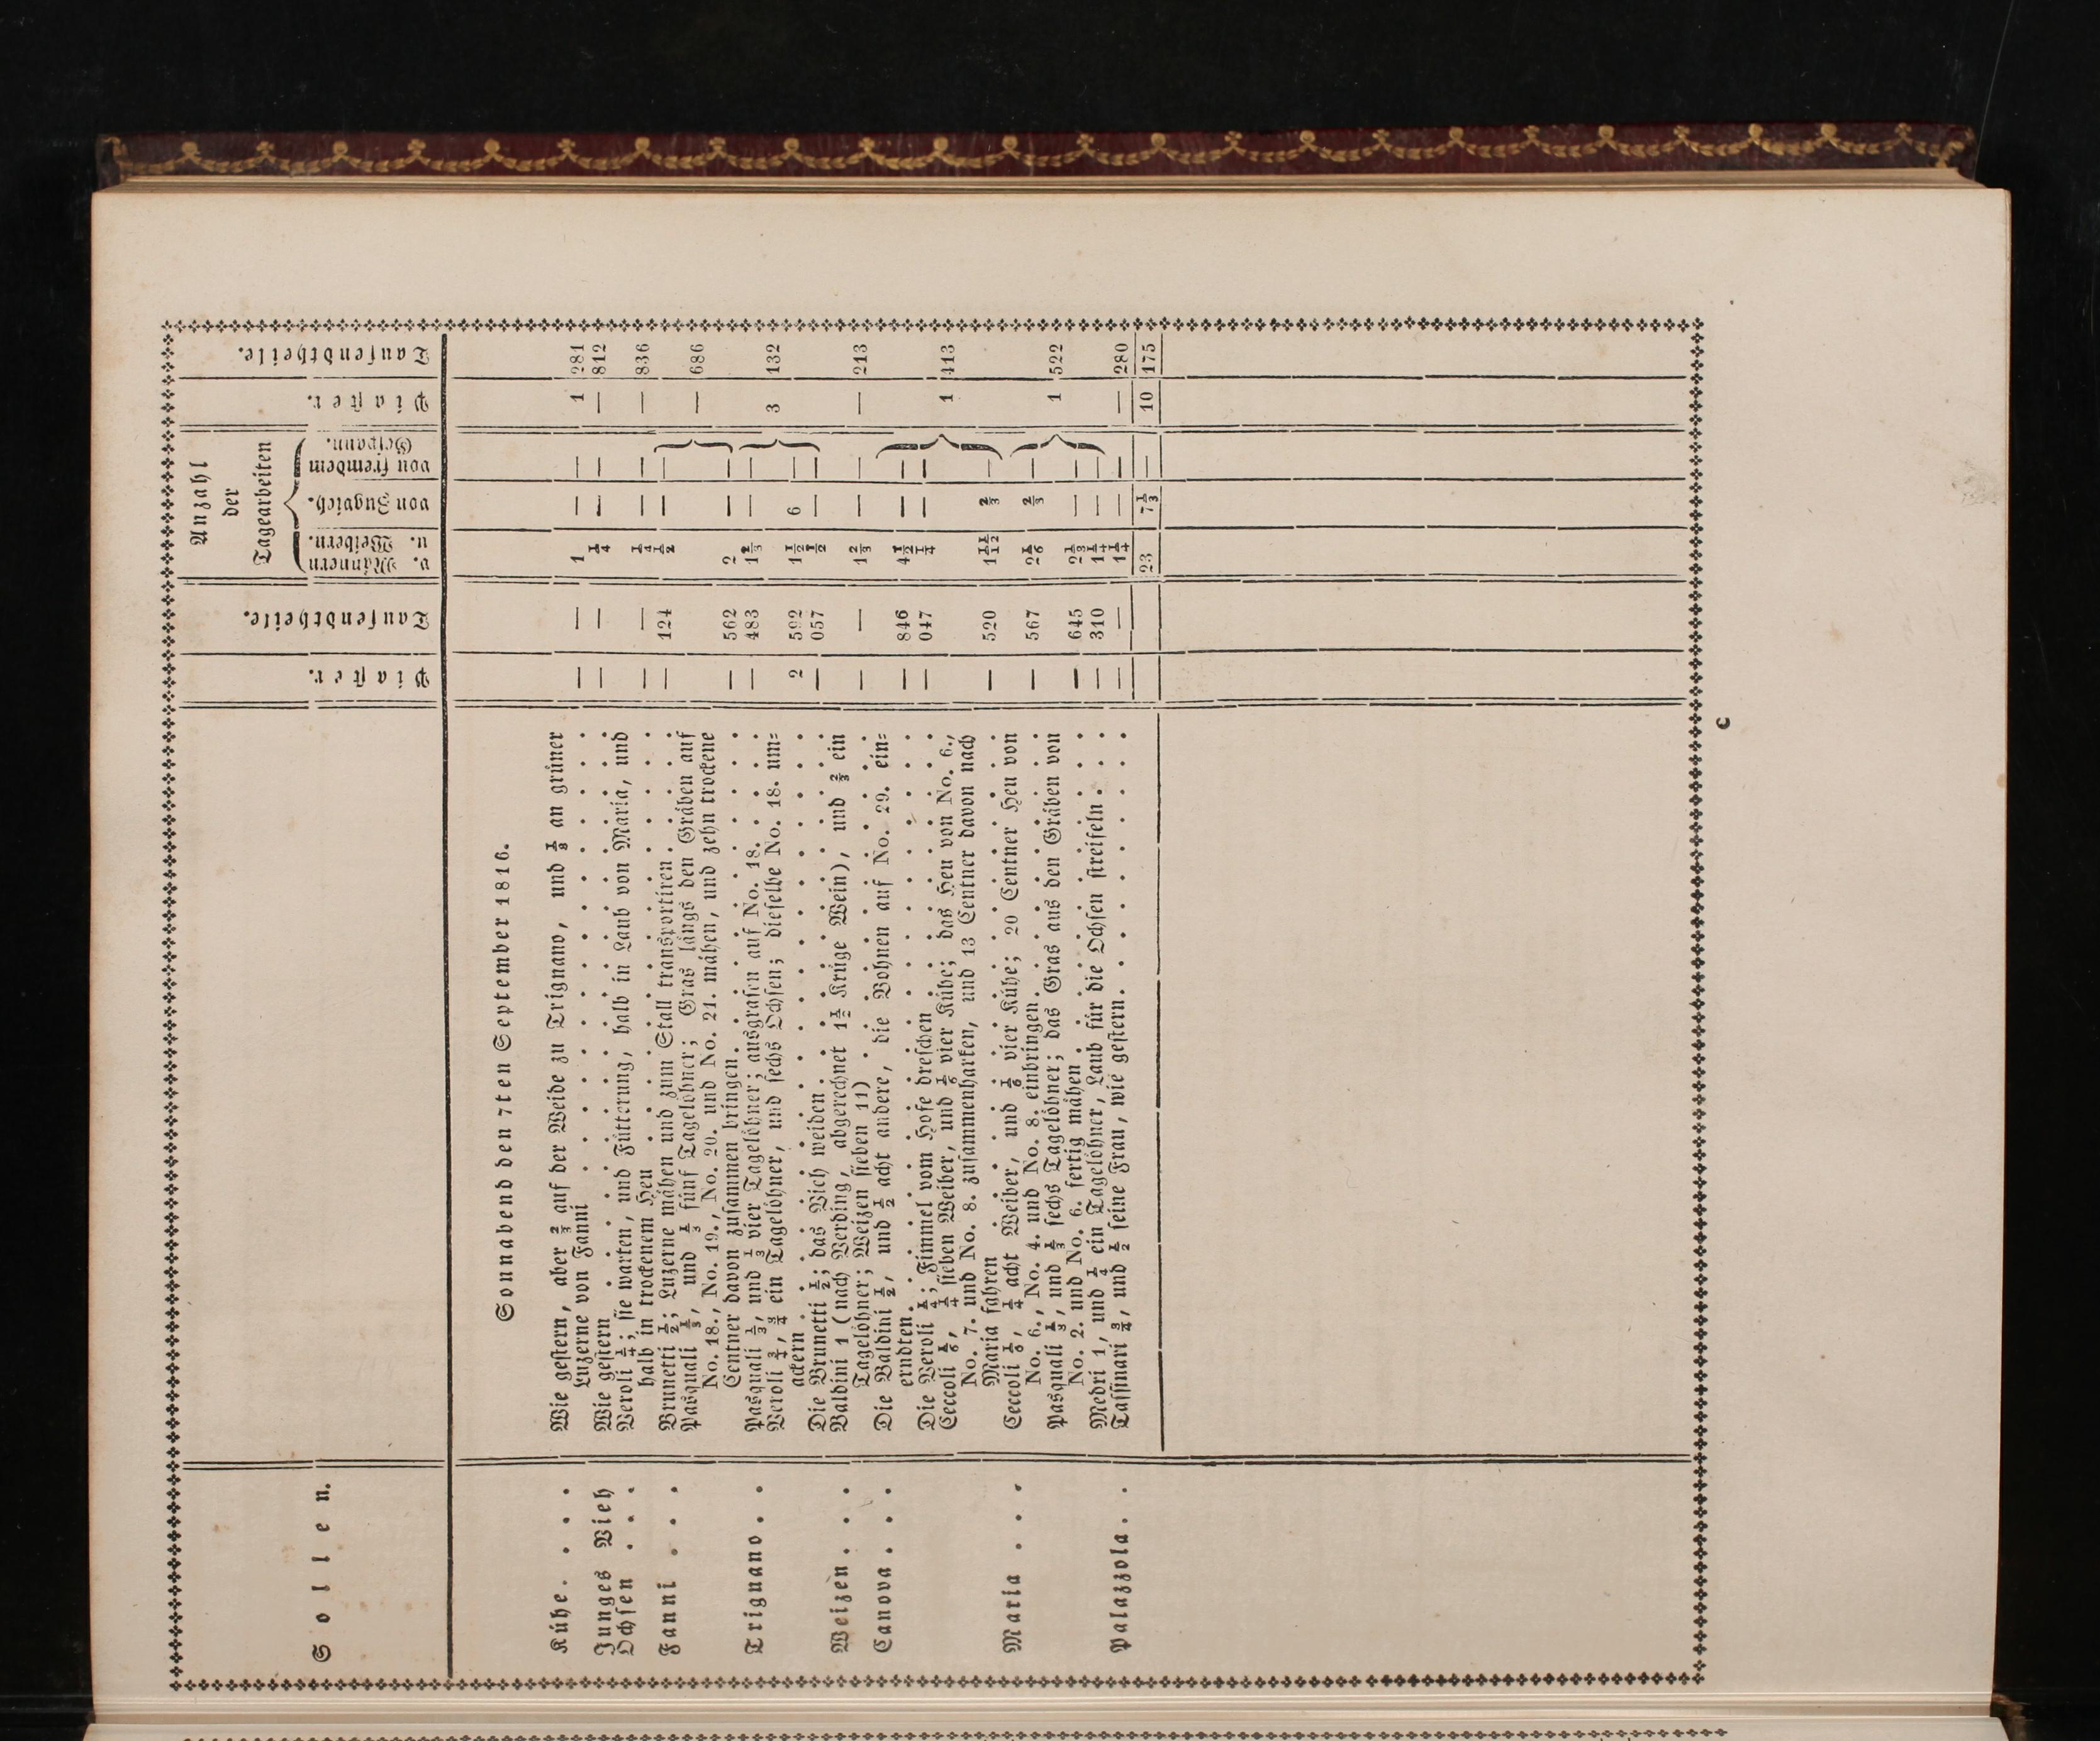 Sollen.
Piaster.
Tausendtheile.
Anzahl
der
Tagearbeiten
v. Männern
u. Weibern.
von Zugvieh.
von fremdem
Gespann.
Piaster.
Tausendtheile.
Sonnabend den 7ten September 1816.
Kühe . . . . Wie gestern, aber ⅔ auf der Weide zu Trignano, und ⅛ an grüner
Luzerne von Fanni — — 1 — — 1 281
Junges Vieh Wie gestern — — ¼ — — — 812
Ochsen . . . Veroli ¼; sie warten, und Fütterung, halb in Laub von Maria, und
halb in trockenem Heu — — ¼ — — — 836
Fanni . . . Brunetti ½; Luzerne mähen und zum Stall transportiren — 124 ½ — —
Pasquali ⅓, und ⅓ fünf Tagelöhner; Gras längs den Gräben auf
No. 18., No. 19., No. 20. und No. 21. mähen, und zehn trockene — 686
Centner davon zusammen bringen — 562 2 — —
Trignano . . Pasquali ⅓, und ⅓ vier Tagelöhner; ausgrasen auf No. 18. — 483 1⅔ — —
Veroli ¾, ¾ ein Tagelöhner, und sechs Ochsen; dieselbe No. 18. um= 3 132
ackern 2 592 1½ 6 —
Die Brunetti ½; das Vieh weiden — 057 ½ — —
Weizen . . . Baldini 1 (nach Verding, abgerechnet 1½ Krüge Wein), und ⅔ ein
Tagelöhner; Weizen sieben 11) — — 1⅔ — — — 213
Canova . . . Die Baldini ½, und ½ acht andere, die Bohnen auf No. 29. ein=
erndten — 846 4½ — —
Die Veroli ¼; Fimmel vom Hofe dreschen — 047 ¼ — —
Ceccoli ⅙, ¼ sieben Weiber, und ⅙ vier Kühe; das Heu von No. 6., 1 413
No. 7. und No. 8. zusammenharken, und 13 Centner davon nach
Maria fahren — 520 1 11/12 ⅔ —
Maria . . . Ceccoli ⅙, ¼ acht Weiber, und ⅙ vier Kühe; 20 Centner Heu von
No. 6., No. 4. und No. 8. einbringen — 567 2⅙ ⅔ —
Pasquali ⅓, und ⅓ sechs Tagelöhner; das Gras aus den Gräben von 1 522
No. 2. und No. 6. fertig mähen — 645 2⅓ — —
Medri 1, und ¼ ein Tagelöhner, Laub für die Ochsen streifeln — 310 1¼ — —
Palazzola . . Tassinari ¾, und ½ seine Frau, wie gestern — — 1¼ — — — 280
23 7⅓ — 10 175
c